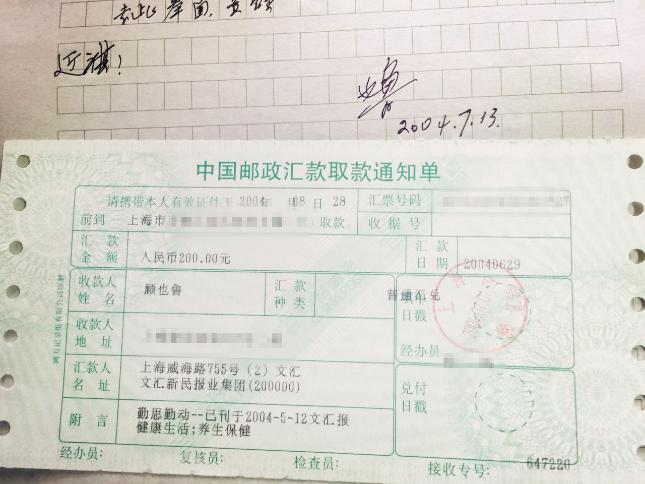 专此奉闻,
近祺!
也鲁
2004.7.13.
中国邮政汇款取款通知单
请携带本人有效证件于 2004 年 8 日 28
汇票号码 27
前到 上海市 取款
收据号
汇款金额 人民币200.00元
汇款日期 20040629
收款人姓名 顾也鲁
汇款种类 普通汇兑
日戳
收款人地址
经办员
汇款人名址 上海威海路755号(2)文汇
文汇新民报业集团(200000)
兑付日戳
附言 勤思勤动--已刊于2004-5-12文汇报
健康生活;养生保健
经办员: 复核员: 检查员: 接收专号: 647220